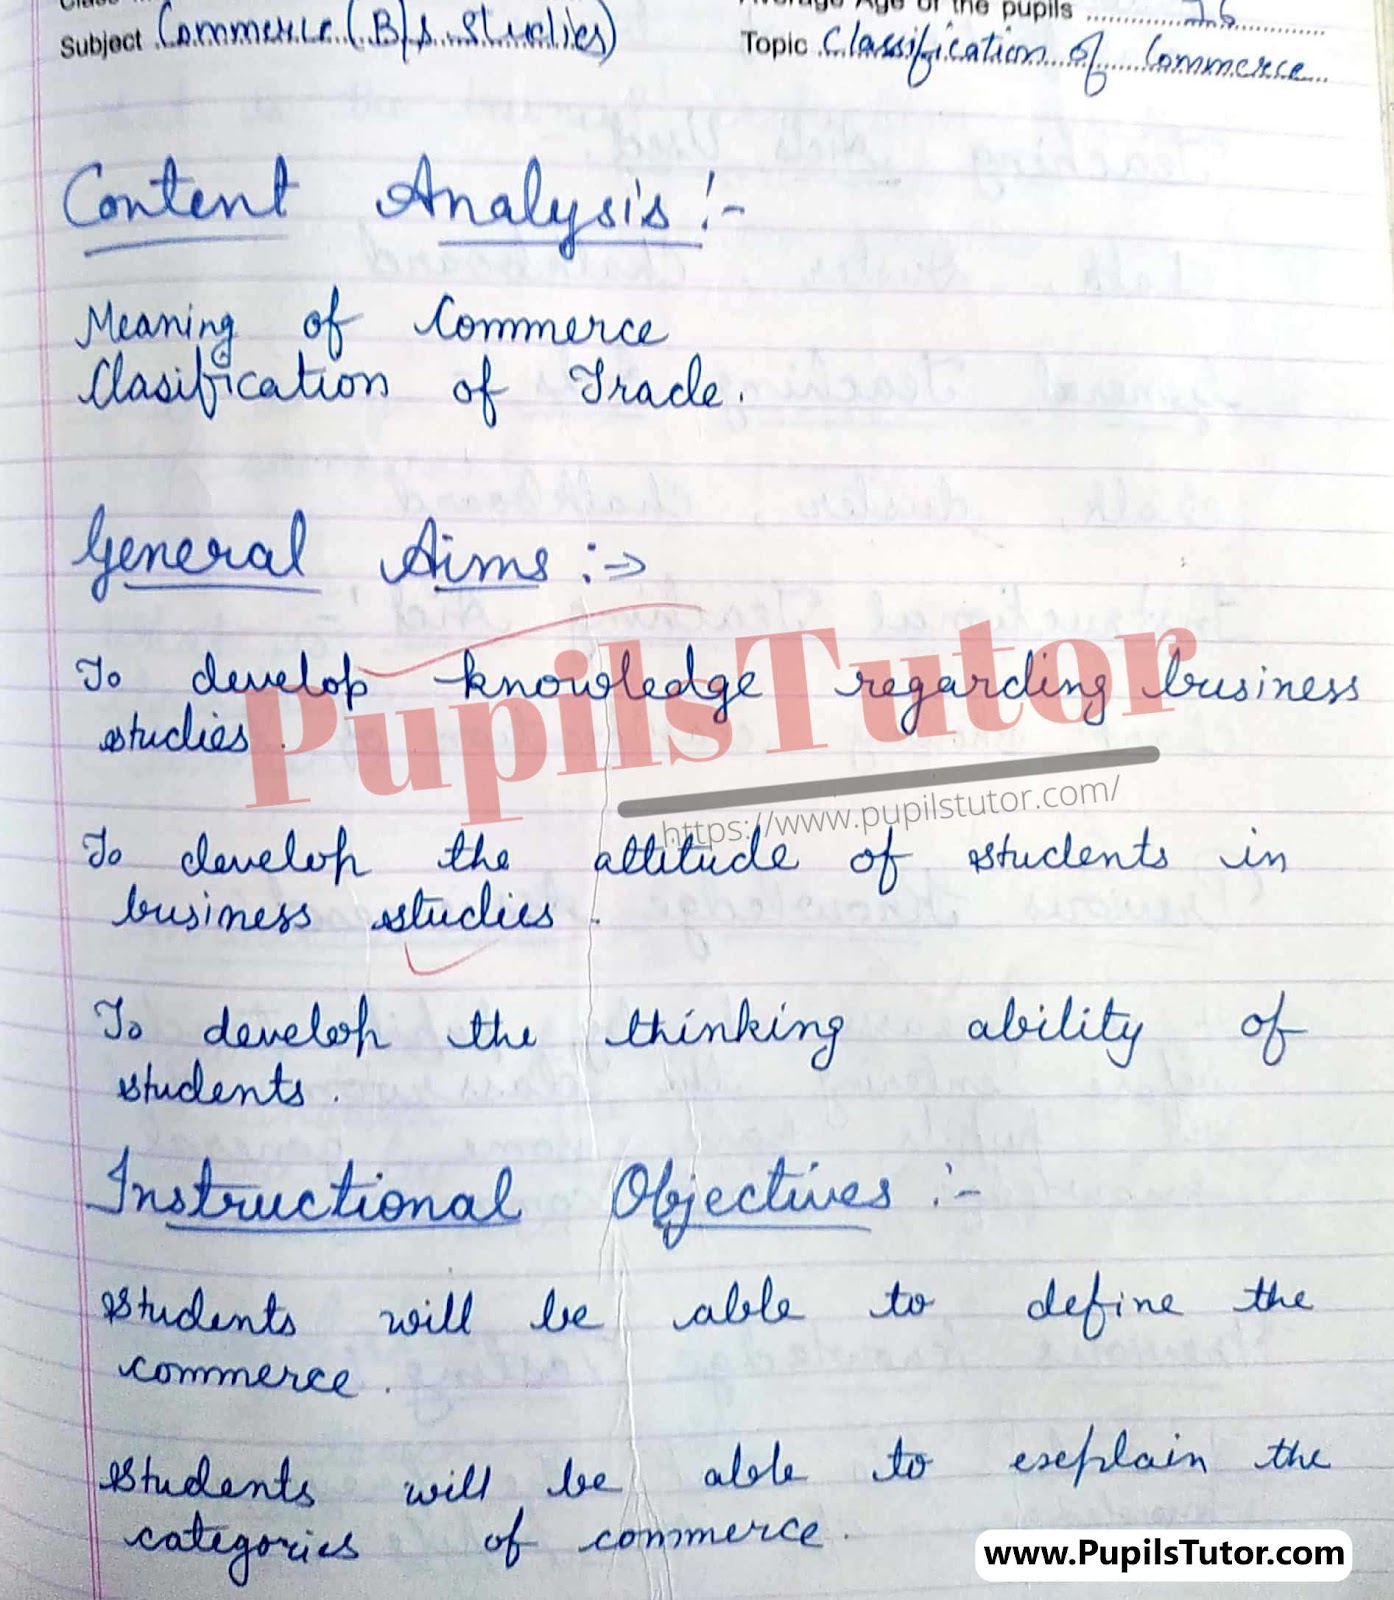 Average Age of the pupils 16
Subject Commerce (B/s Studies)
Topic Classification of Commerce
Content Analysis :-
Meaning of Commerce
Clasification of Trade.
General Aims :→
To develop knowledge regarding business
studies.
PupilsTutor
https://www.pupilstutor.com/
To develop the attitude of students in
business studies.
To develop the thinking ability of
students.
Instructional Objectives :-
Students will be able to define the
commerce.
Students will be able to explain the
categories of commerce.
www.PupilsTutor.com